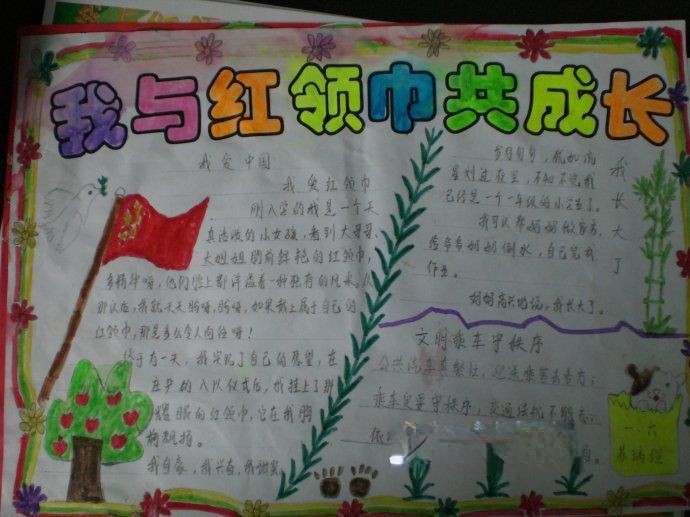 我与红领巾共成长
我爱中国
我爱红领巾
刚入学的我是一个天
真活泼的小女孩，看到大哥哥
大姐姐胸前鲜艳的红领巾，
多精神呀，他们脸上都洋溢着一种独有的风采。从
那以后，我就天天盼呀，盼呀，如果我上属于自己的
红领巾，那是多么令人向往呀！
终于有一天，我实现了自己的愿望，在
庄严的入队仪式后，我挂上了那
耀眼的红领巾，它在我胸
前飘扬。
我自豪，我兴奋，我甜蜜
我长大了
岁月匆匆，我如流
星划过夜里，不知不觉我
已经是一个一年级的小学生了。
我可以帮妈妈做家务，
给爷爷奶奶倒水，自己完成
作业。
妈妈高兴地说，我长大了。
文明乘车守秩序
公共汽车真繁忙，迎送乘客去务方；
乘车定要守秩序，交通法规不能忘；
依
一．六
苏